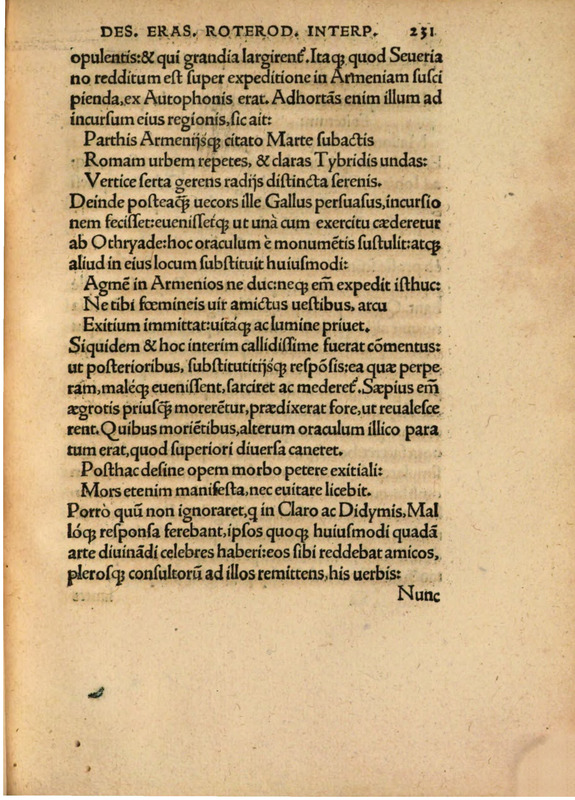 DES. ERAS. ROTEROD. INTERP. 231
opulentis:& qui grandia largirenť. Itaq; quod Seueria
no redditum est super expeditione in Armeniam susci
pienda,ex Autophonis erat. Adhortãs enim illum ad
incursum eius regionis,sic ait:
Parthis Armenijsq; citato Marte subactis
Romam urbem repetes, & claras Tybridis undas:
Vertice serta gerens radijs distincta serenis.
Deinde posteaq̃ uecors ille Gallus persuasus,incursio
nem fecisset:euenissetq; ut unà cum exercitu cæderetur
ab Othryade:hoc oraculum è monumẽtis sustulit:atq;
aliud in eius locum substituit huiusmodi:
Agmẽ in Armenios ne duc:neq; em̃ expedit isthuc:
Ne tibi fœmineis uir amictus uestibus, arcu
Exitium immittat:uitaq; ac lumine priuet.
Siquidem & hoc interim callidissime fuerat cõmentus:
ut posterioribus, substitutitijsq; respõsis:ea quæ perpe
ram,maleq; euenissent,sarciret ac mederet́. Sæpius em̃
ægrotis priusq̃ morerẽtur,prædixerat fore,ut reualesce
rent.Quibus moriẽtibus,alterum oraculum illico para
tum erat,quod superiori diuersa caneret.
Posthac desine opem morbo petere exitiali:
Mors etenim manifesta,nec euitare licebit.
Porrò quũ non ignoraret,q in Claro ac Didymis,Mal
lóq; responsa ferebant,ipsos quoq; huiusmodi quadã
arte diuinãdi celebres haberi:eos sibi reddebat amicos,
plerosq; consultorũ ad illos remittens,his uerbis:
Nunc